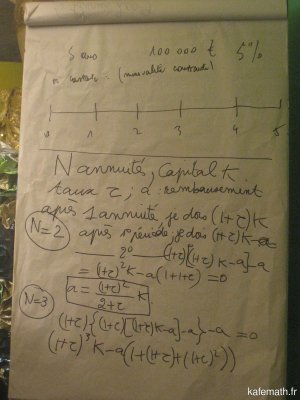 5 ans 100 000 € 5%
(mensualité constante)
0 1 2 3 4 5
N annuités, Capital K
taux τ; a: remboursement
après 1 annuité je dois (1+τ)K
après 1e période, je dois (1+τ)K-a
N=2
2° (1+τ)[(1+τ)K-a]-a
= (1+τ)²K-a(1+1+τ) = 0
a = (1+τ)²/(2+τ) K
N=3
(1+τ){(1+τ)[(1+τ)K-a]-a}-a = 0
(1+τ)³K-a(1+(1+τ)+(1+τ)²))
kafemath.fr